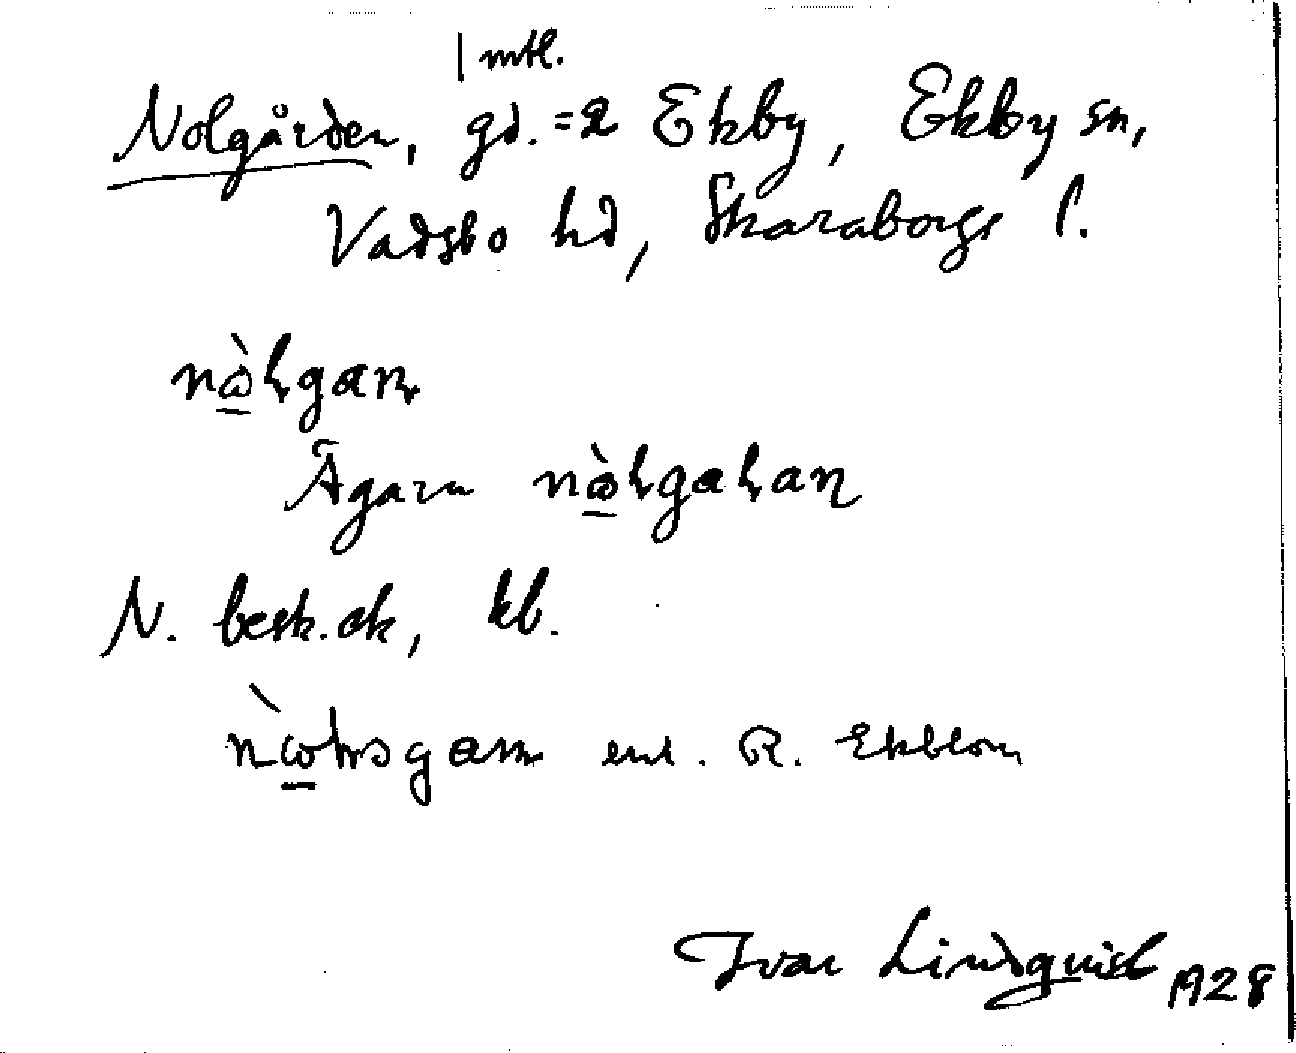 1 mtl.
Nolgården, gd. = 2 Ekby, Ekby sn,
Vadsbo hd, Skaraborgs l.
nò̲ɬgaɳ
Ägarn nò̲ɬgaɬaɳ
N. besk. ak, kb.
enl. R. Ekblom
Ivar Lindquist 1928